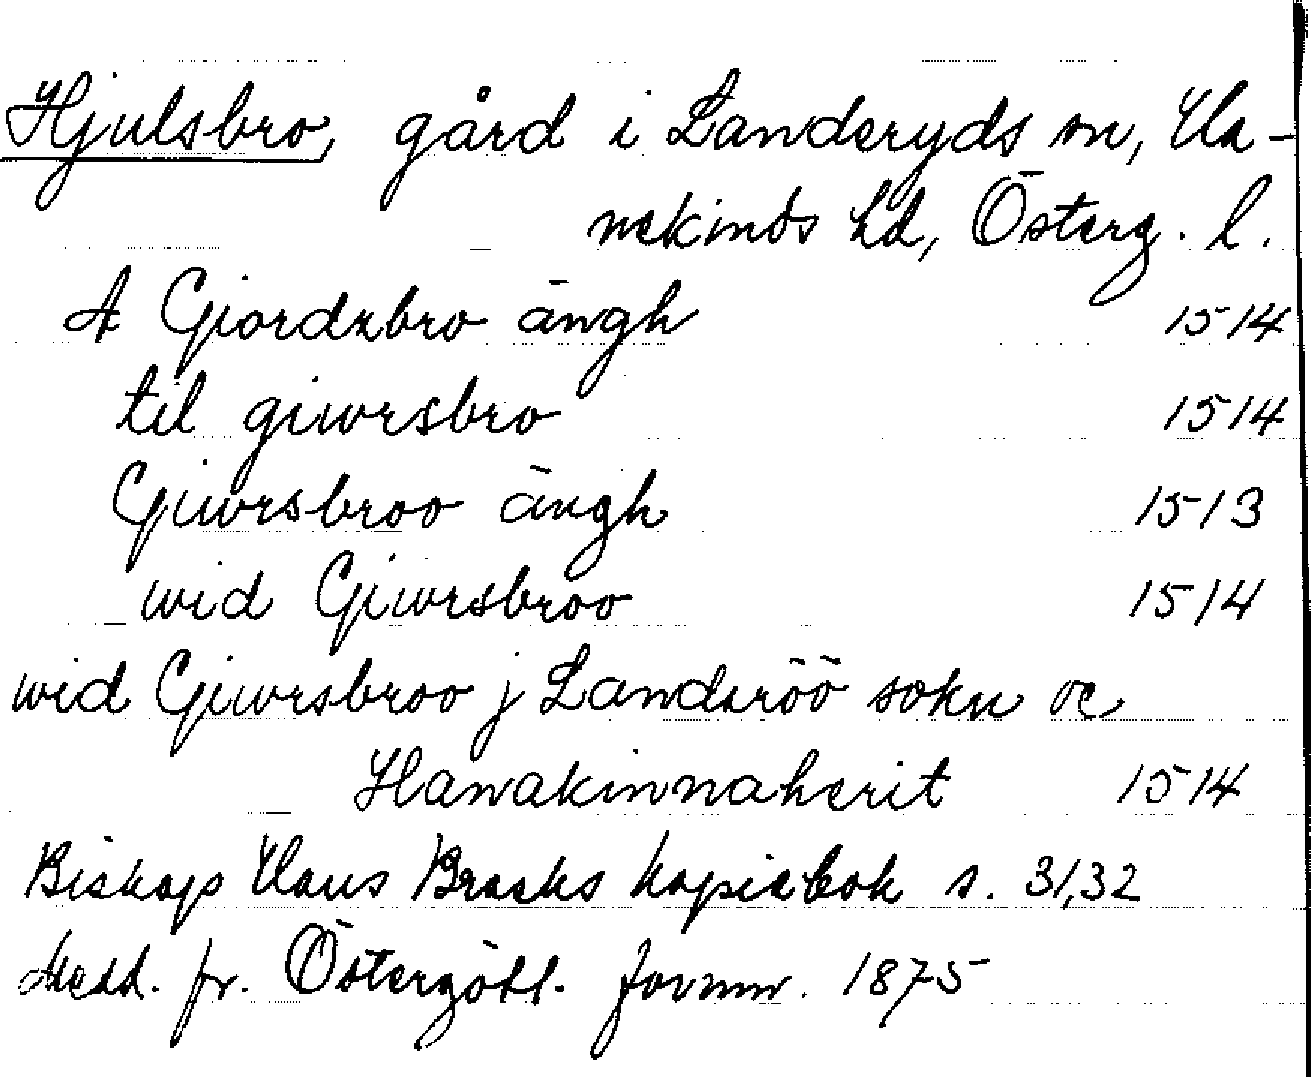 Hjulsbro, gård i Landeryds sn, Ha-
nekinds hd, Österg. l.
A Giordzbro ängh 1514
til giwrsbro 1514
Giwrsbroo ängh 1513
wid Giwrsbroo 1514
wid Giwrsbroo j Landzröö sokn oc
Hanakinnaherit 1514
Biskop Hans Brasks kopiebok s. 31,32
Medd. fr. Östergötl. fornm. 1875